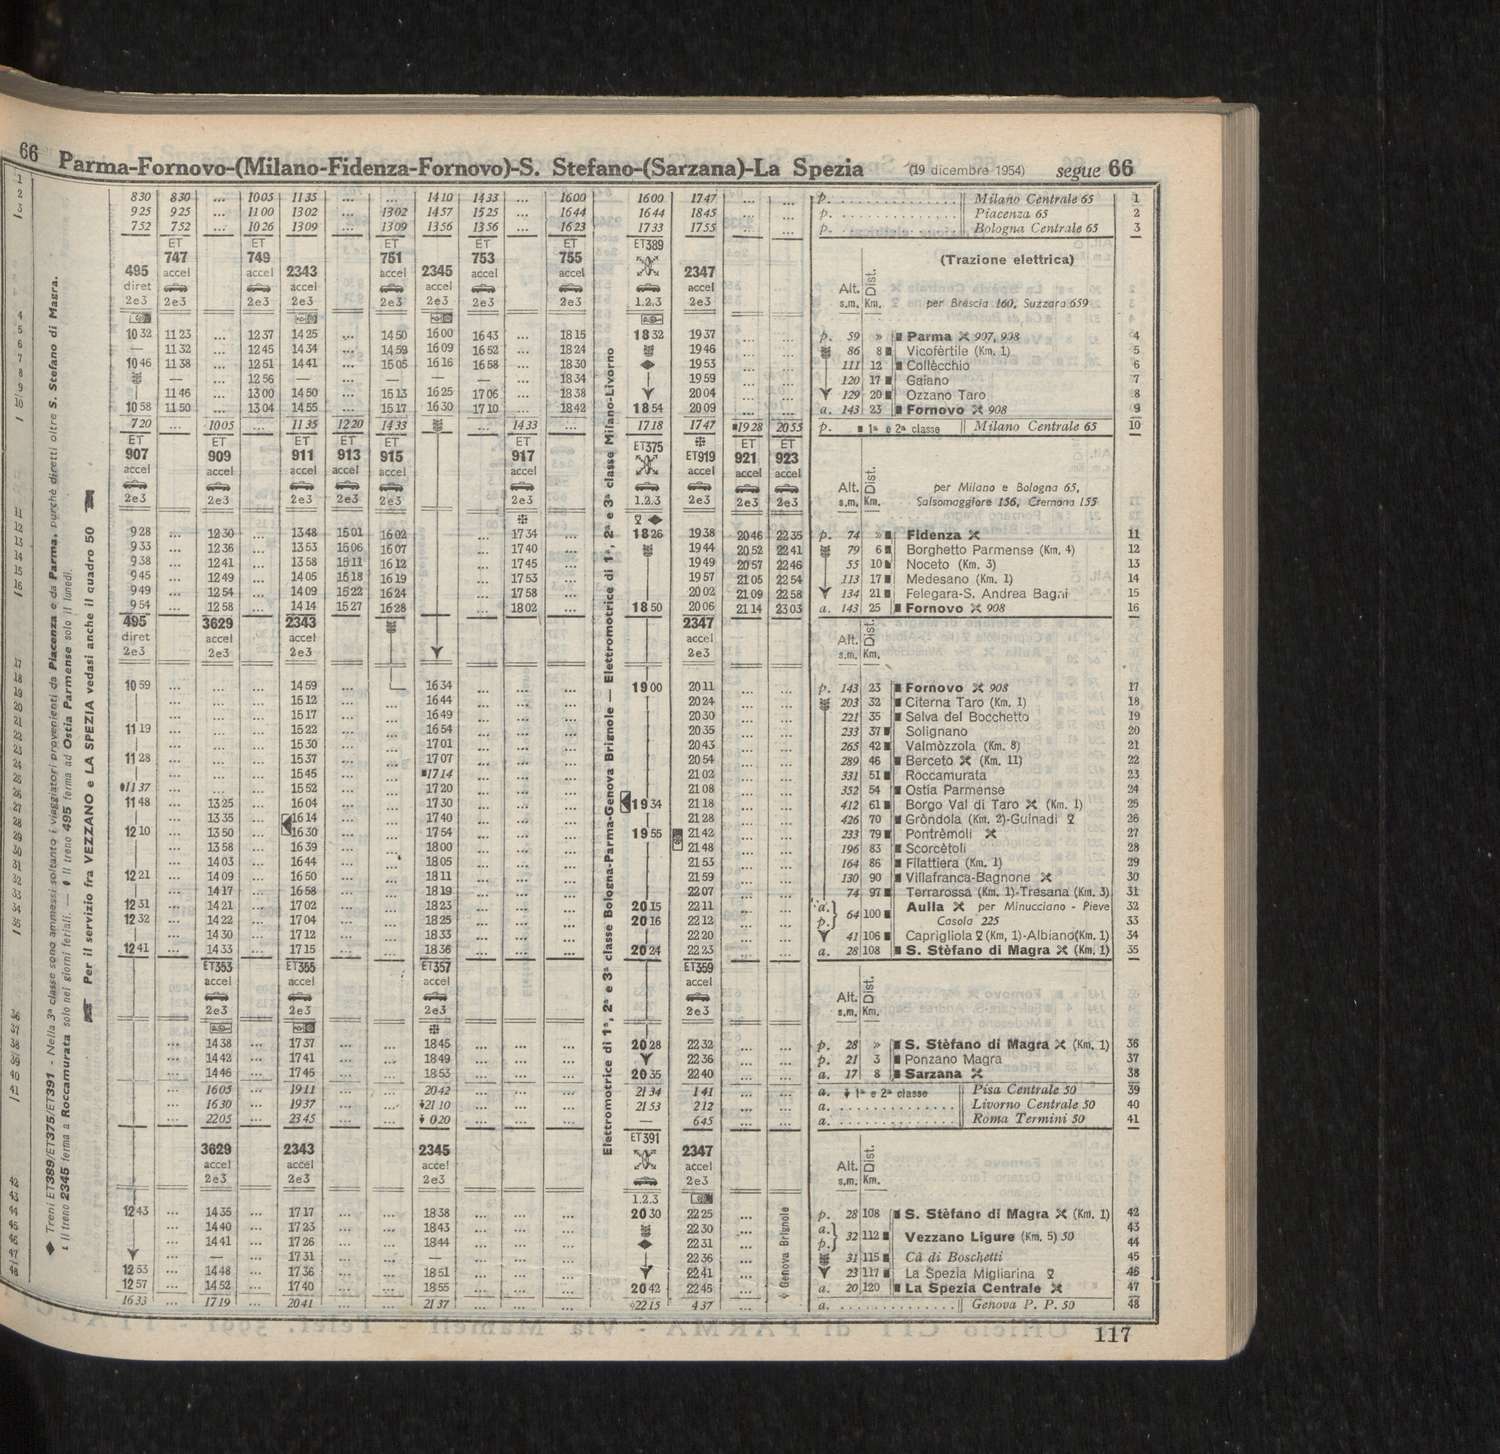 66 Parma-Fornovo-(Milano-Fidenza-Fornovo)-S. Stefano-(Sarzana)-La Spezia (19 dicembre 1954) segue 66
830 830 ... 1005 1135 ... ... 1410 1433 ... 1600 1600 1747 ... ... p. Milano Centrale 65 1
925 925 ... 1100 1302 ... 1302 1457 1525 ... 1644 1644 1845 ... ... p. Piacenza 65 2
752 752 ... 1026 1309 ... 1309 1356 1356 ... 1623 1733 1755 ... p. Bologna Centrale 65 3
ET ET ET ET ET ET389
747 749 751 753 755 (Trazione elettrica)
495 accel accel 2343 accel 2345 accel accel 2347
diret accel accel accel Alt. Dist.
2e3 2e3 2e3 2e3 2e3 2e3 2e3 2e3 1.2.3 2e3 s.m. Km. per Brescia 160, Suzzara 659
1032 1123 1237 1425 ... 1450 1600 1643 ... 1815 1832 1937 ... ... p. 59 » Parma 907, 908 4
— 1132 ... 1245 1434 ... 1459 1609 1652 ... 1824 1946 ... ... 86 8 Vicofèrtile (Km. 1) 5
1046 1138 ... 1251 1441 ... 1505 1616 1658 ... 1830 1953 ... ... 111 12 Collècchio 6
— ... 1256 — ... — — — ... 1834 1959 ... ... 120 17 Gaiano 7
1146 ... 1300 1450 ... 1513 1625 1706 ... 1838 2004 ... ... 129 20 Ozzano Taro 8
1058 1150 ... 1304 1455 ... 1517 1630 1710 ... 1842 1854 2009 ... ... a. 143 23 Fornovo 908 9
720 ... 1005 ... 1135 1220 1433 ... 1433 ... 1718 1747 1928 2055 p. 1ª e 2ª classe Milano Centrale 65 10
ET ET ET ET ET ET ET375 ET ET
907 909 911 913 915 917 ET919 921 923
accel accel accel accel accel accel accel accel accel
Alt. Dist. per Milano e Bologna 65,
2e3 2e3 2e3 2e3 2e3 2e3 1.2.3 2e3 2e3 2e3 s.m. Km. Salsomaggiore 156, Cremona 155
928 ... 1230 ... 1348 1501 1602 ... 1734 ... 1826 1938 2046 2235 p. 74 » Fidenza 11
933 ... 1236 ... 1353 1506 1607 ... 1740 ... 1944 2052 2241 79 6 Borghetto Parmense (Km. 4) 12
938 ... 1241 ... 1358 1511 1612 ... 1745 ... 1949 2057 2246 55 10 Noceto (Km. 3) 13
945 ... 1249 ... 1405 1518 1619 ... 1753 ... 1957 2105 2254 113 17 Medesano (Km. 1) 14
949 ... 1254 ... 1409 1522 1624 ... 1758 ... 2002 2109 2258 134 21 Felegara-S. Andrea Bagni 15
954 ... 1258 ... 1414 1527 1628 ... 1802 ... 1850 2006 2114 2303 a. 143 25 Fornovo 908 16
495 3629 2343 2347
diret accel accel accel Alt. Dist.
2e3 2e3 2e3 2e3 s.m. Km.
1059 ... ... ... 1459 ... 1634 ... ... ... 1900 2011 ... ... p. 143 23 Fornovo 908 17
... ... ... 1512 ... 1644 ... ... ... 2024 ... ... 203 32 Citerna Taro (Km. 1) 18
... ... ... 1517 ... 1649 ... ... ... 2030 ... ... 221 35 Selva del Bocchetto 19
1119 ... ... ... 1522 ... ... 1654 ... ... ... 2035 ... ... 233 37 Solignano 20
... ... ... 1530 ... ... 1701 ... ... ... 2043 ... ... 265 42 Valmòzzola (Km. 8) 21
1128 ... ... ... 1537 ... ... 1707 ... ... ... 2054 ... ... 289 46 Berceto (Km. 11) 22
... ... ... 1545 ... ... 1714 ... ... ... 2102 ... ... 331 51 Roccamurata 23
1137 ... ... ... 1552 ... ... 1720 ... ... ... 2108 ... ... 352 54 Ostia Parmense 24
1148 ... 1325 ... 1604 ... ... 1730 ... ... ... 1934 2118 ... ... 412 61 Borgo Val di Taro (Km. 1) 25
... 1335 ... 1614 ... ... 1740 ... ... ... 2128 ... ... 426 70 Gròndola (Km. 2)-Guinadi 26
1210 ... 1350 ... 1630 ... ... 1754 ... ... ... 1955 2142 ... ... 233 79 Pontrèmoli 27
... 1358 ... 1639 ... ... 1800 ... ... ... 2148 ... ... 196 83 Scorcètoli 28
... 1403 ... 1644 ... ... 1805 ... ... ... 2153 ... ... 164 86 Filattiera (Km. 1) 29
1221 ... 1409 ... 1650 ... ... 1811 ... ... ... 2159 ... ... 130 90 Villafranca-Bagnone 30
... 1417 ... 1658 ... ... 1819 ... ... ... 2207 ... ... 74 97 Terrarossa (Km. 1)-Tresana (Km. 3) 31
1231 ... 1421 ... 1702 ... ... 1823 ... ... ... 2015 2211 ... ... a. 64 100 Aulla per Minucciano - Pieve 32
1232 ... 1422 ... 1704 ... ... 1825 ... ... ... 2016 2212 ... ... p. Casola 225 33
... 1430 ... 1712 ... ... 1833 ... ... ... 2220 ... ... 41 106 Caprigliola (Km, 1)-Albiano(Km. 1) 34
1241 ... 1433 ... 1715 ... ... 1836 ... ... ... 2024 2223 ... ... a. 28 108 S. Stèfano di Magra (Km. 1) 35
ET353 ET355 ET357 ET359
accel accel accel accel
Alt. Dist.
2e3 2e3 2e3 2e3 s.m. Km.
1438 ... 1737 1845 2028 2232 ... ... p. 28 » S. Stèfano di Magra (Km. 1) 36
1442 ... 1741 1849 2236 ... ... p. 21 3 Ponzano Magra 37
1446 ... 1745 1853 2035 2240 ... ... a. 17 8 Sarzana 38
1605 ... 1911 2042 2134 141 ... ... a. 1ª e 2ª classe Pisa Centrale 50 39
1630 ... 1937 2110 2153 212 ... ... a. Livorno Centrale 50 40
2205 ... 2345 020 — 645 ... ... a. Roma Termini 50 41
ET391
3629 2343 2345 2347
accel accel accel accel Alt. Dist.
2e3 2e3 2e3 2e3 s.m. Km.
1.2.3
1243 ... 1435 ... 1717 ... ... 1838 ... ... ... 2030 2225 ... p. 28 108 S. Stèfano di Magra (Km. 1) 42
... 1440 ... 1723 ... ... 1843 ... ... ... 2230 ... a. 32 112 Vezzano Ligure (Km. 5) 50 43
... 1441 ... 1726 ... ... 1844 ... ... ... 2231 ... p. 44
... — ... 1731 ... ... — ... ... ... 2236 ... 31 115 Cà di Boschetti 45
1253 ... 1448 ... 1736 ... ... 1851 ... ... ... 2241 ... 23 117 La Spezia Migliarina 46
1257 ... 1452 ... 1740 ... ... 1855 ... ... ... 2042 2245 ... a. 20 120 La Spezia Centrale 47
1633 ... 1719 ... 2041 ... ... 2137 ... ... ... 2215 437 ... a. Genova P. P. 50 48
117
Treni ET389/ET375/ET391 - Nella 3ª classe sono ammessi soltanto i viaggiatori provenienti da Piacenza e da Parma, purchè diretti oltre S. Stefano di Magra.
Il treno 2345 ferma a Roccamurata solo nei giorni feriali. — Il treno 495 ferma ad Ostia Parmense solo il lunedì.
Per il servizio fra VEZZANO e LA SPEZIA vedasi anche il quadro 50
Elettromotrice di 1ª, 2ª e 3ª classe Bologna-Parma-Genova Brignole — Elettromotrice di 1ª, 2ª e 3ª classe Milano-Livorno
Genova Brignole